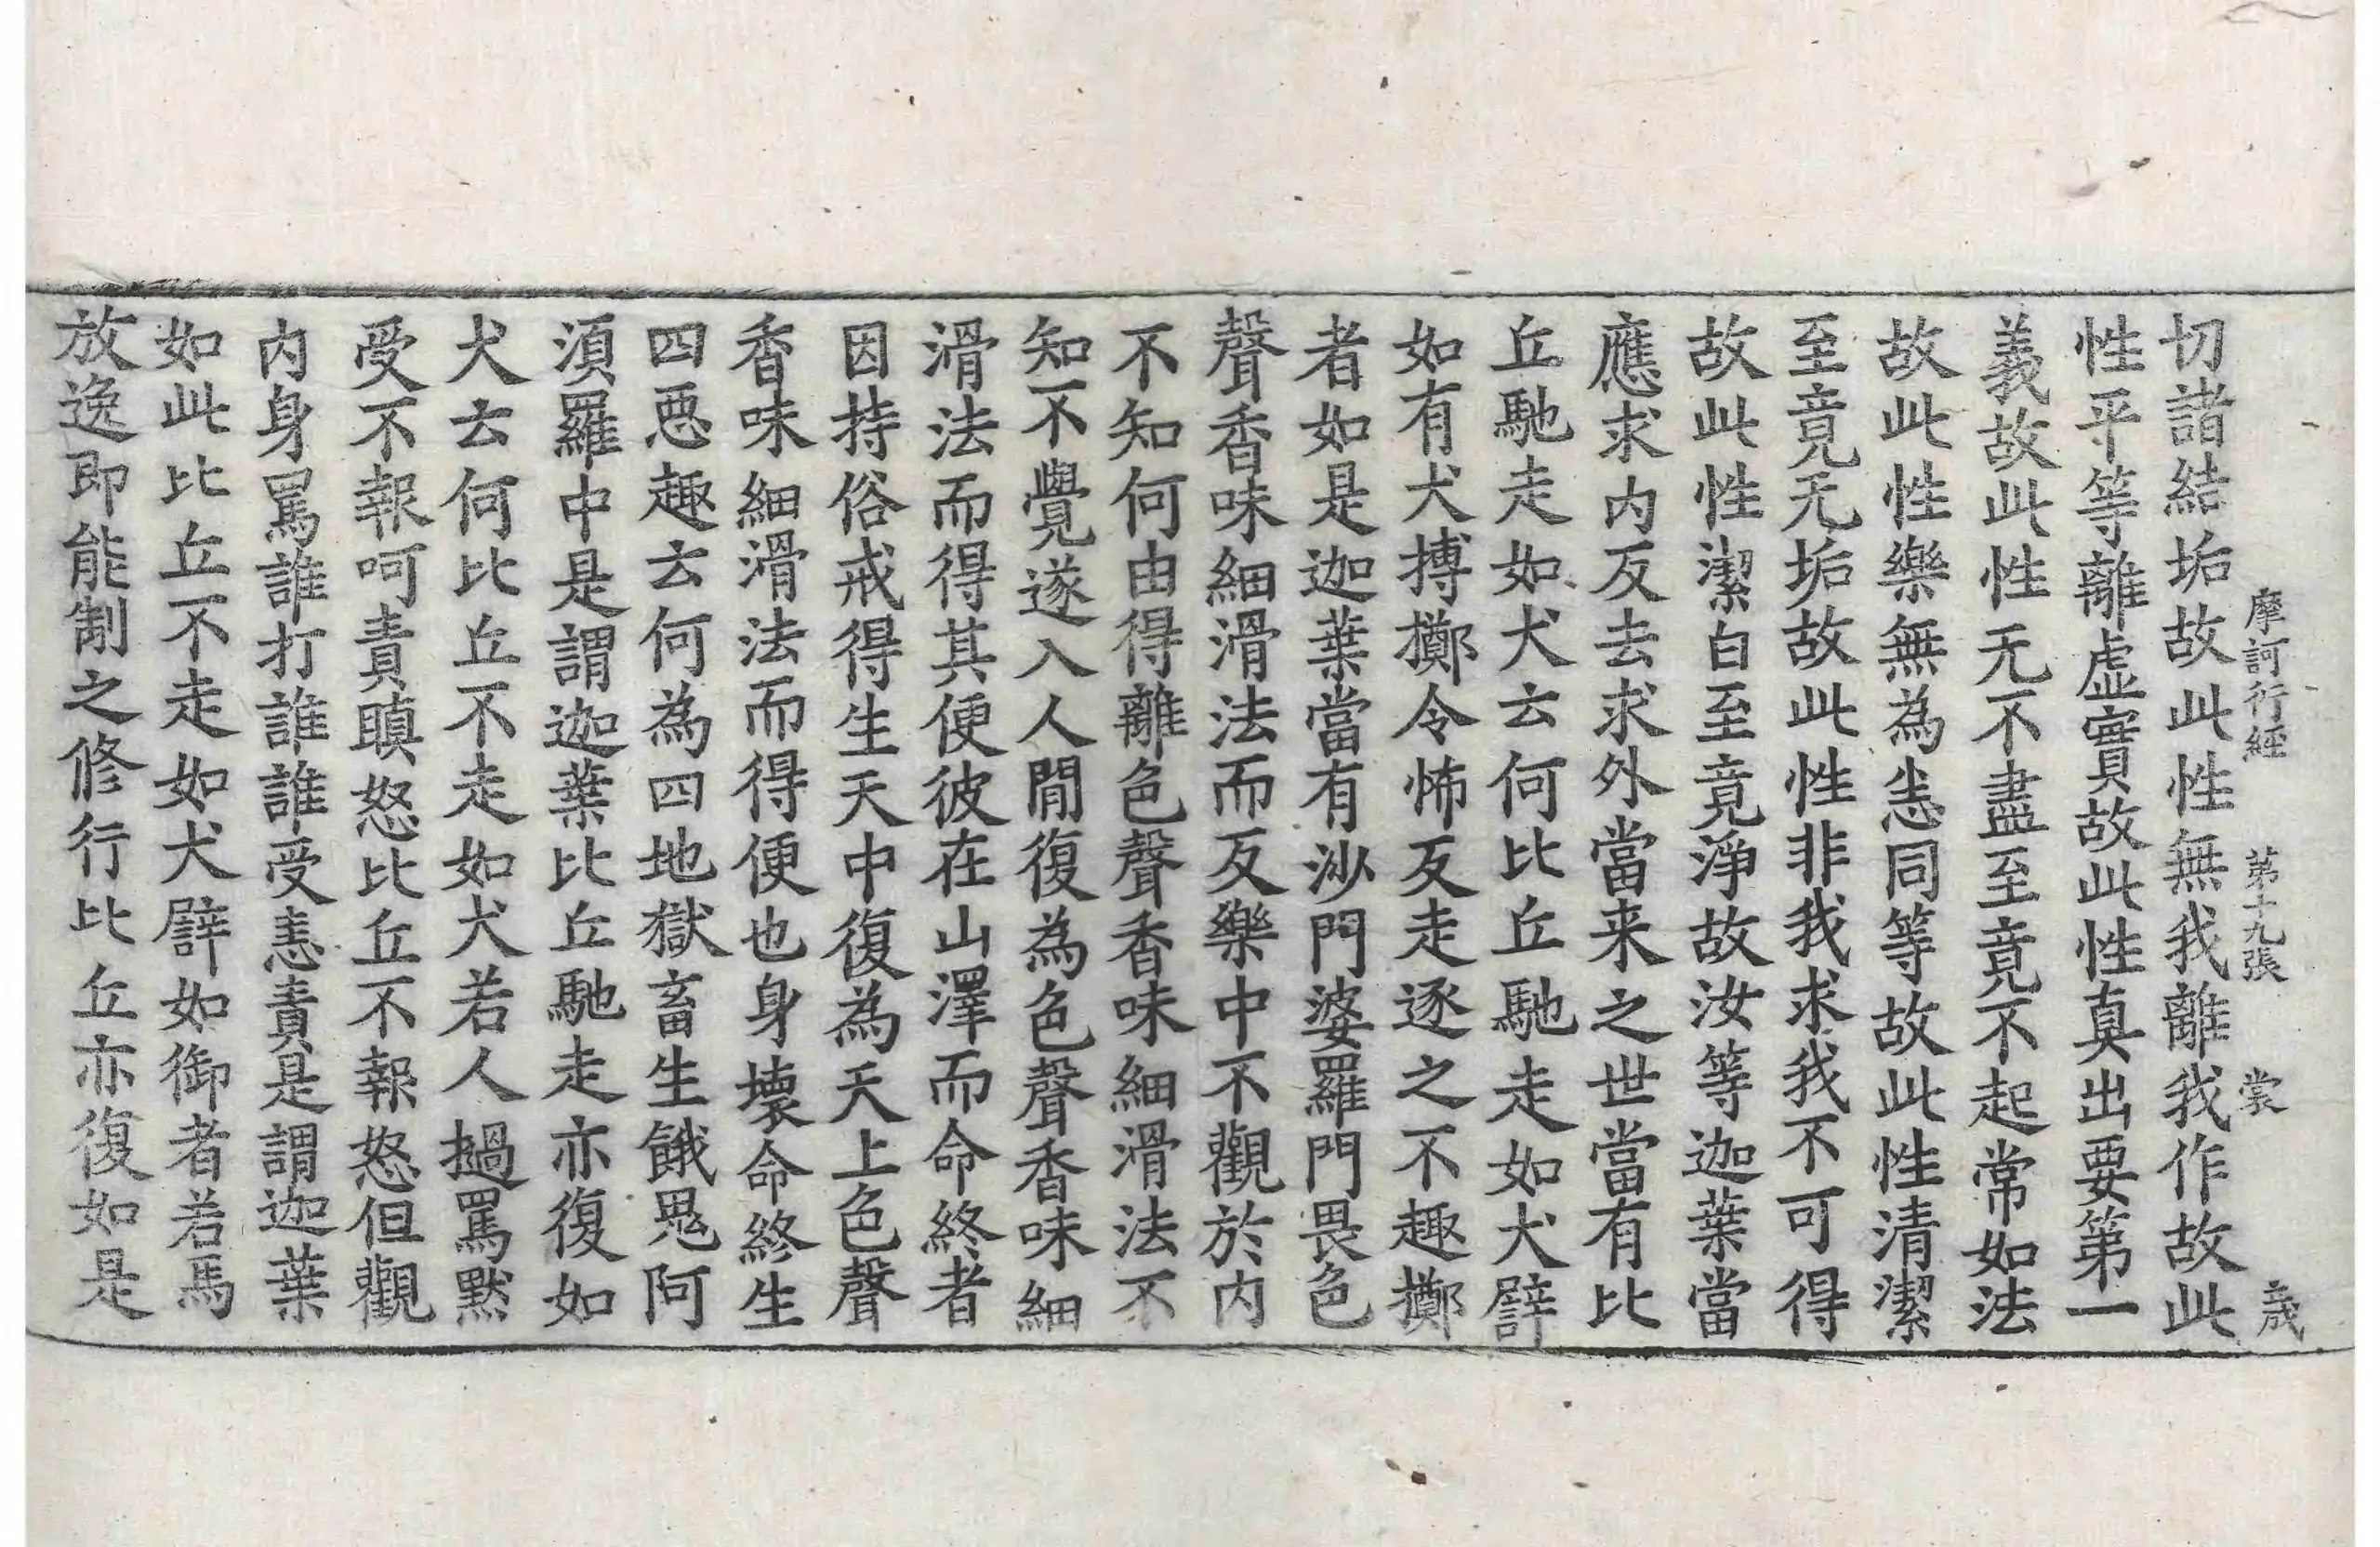 摩訶衍經 第十九張 裳 歲
切諸結垢故此性無我離我作故此
性平等離虛實故此性真出要第一
義故此性无不盡至竟不起常如法
故此性樂無為恙同等故此性清潔
至竟无垢故此性非我求我不可得
故此性潔白至竟淨故汝等迦葉當
應求內反去求外當来之世當有比
丘馳走如犬云何比丘馳走如犬譬
如有犬摶擲令怖反走逐之不趣擲
者如是迦葉當有沙門婆羅門畏色
聲香味細滑法而反樂中不觀於內
不知何由得離色聲香味細滑法不
知不覺遂入人間復為色聲香味細
滑法而得其便彼在山澤而命終者
因持俗戒得生天中復為天上色聲
香味細滑法而得便也身壞命終生
四惡趣云何為四地獄畜生餓鬼阿
須羅中是謂迦葉比丘馳走亦復如
犬云何比丘不走如犬若人撾罵默
受不報呵責瞋怒比丘不報怒但觀
內身罵誰打誰誰受恚責是謂迦葉
如此比丘不走如犬譬如御者若馬
放逸即能制之修行比丘亦復如是